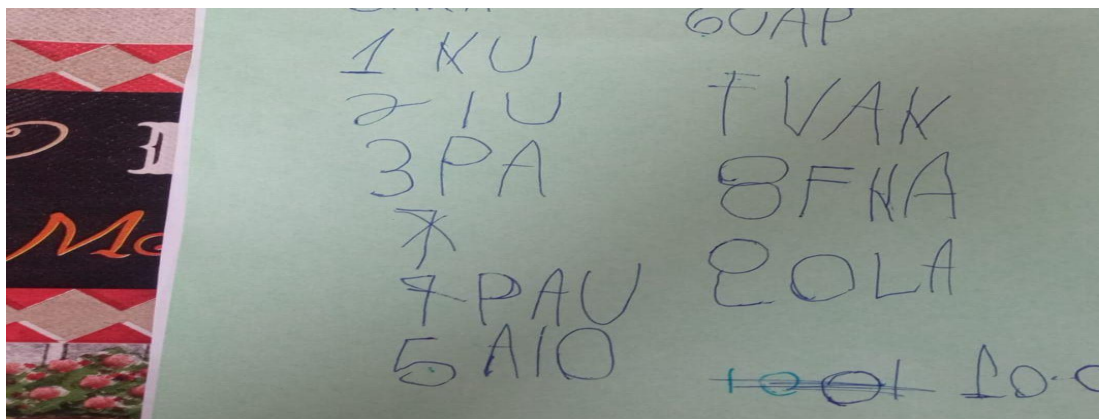 1 KU
2 IU
3 PA
7 PAU
5 AIO
6 UAP
7 VAK
8 FHA
9 OLA
10.0
Mo